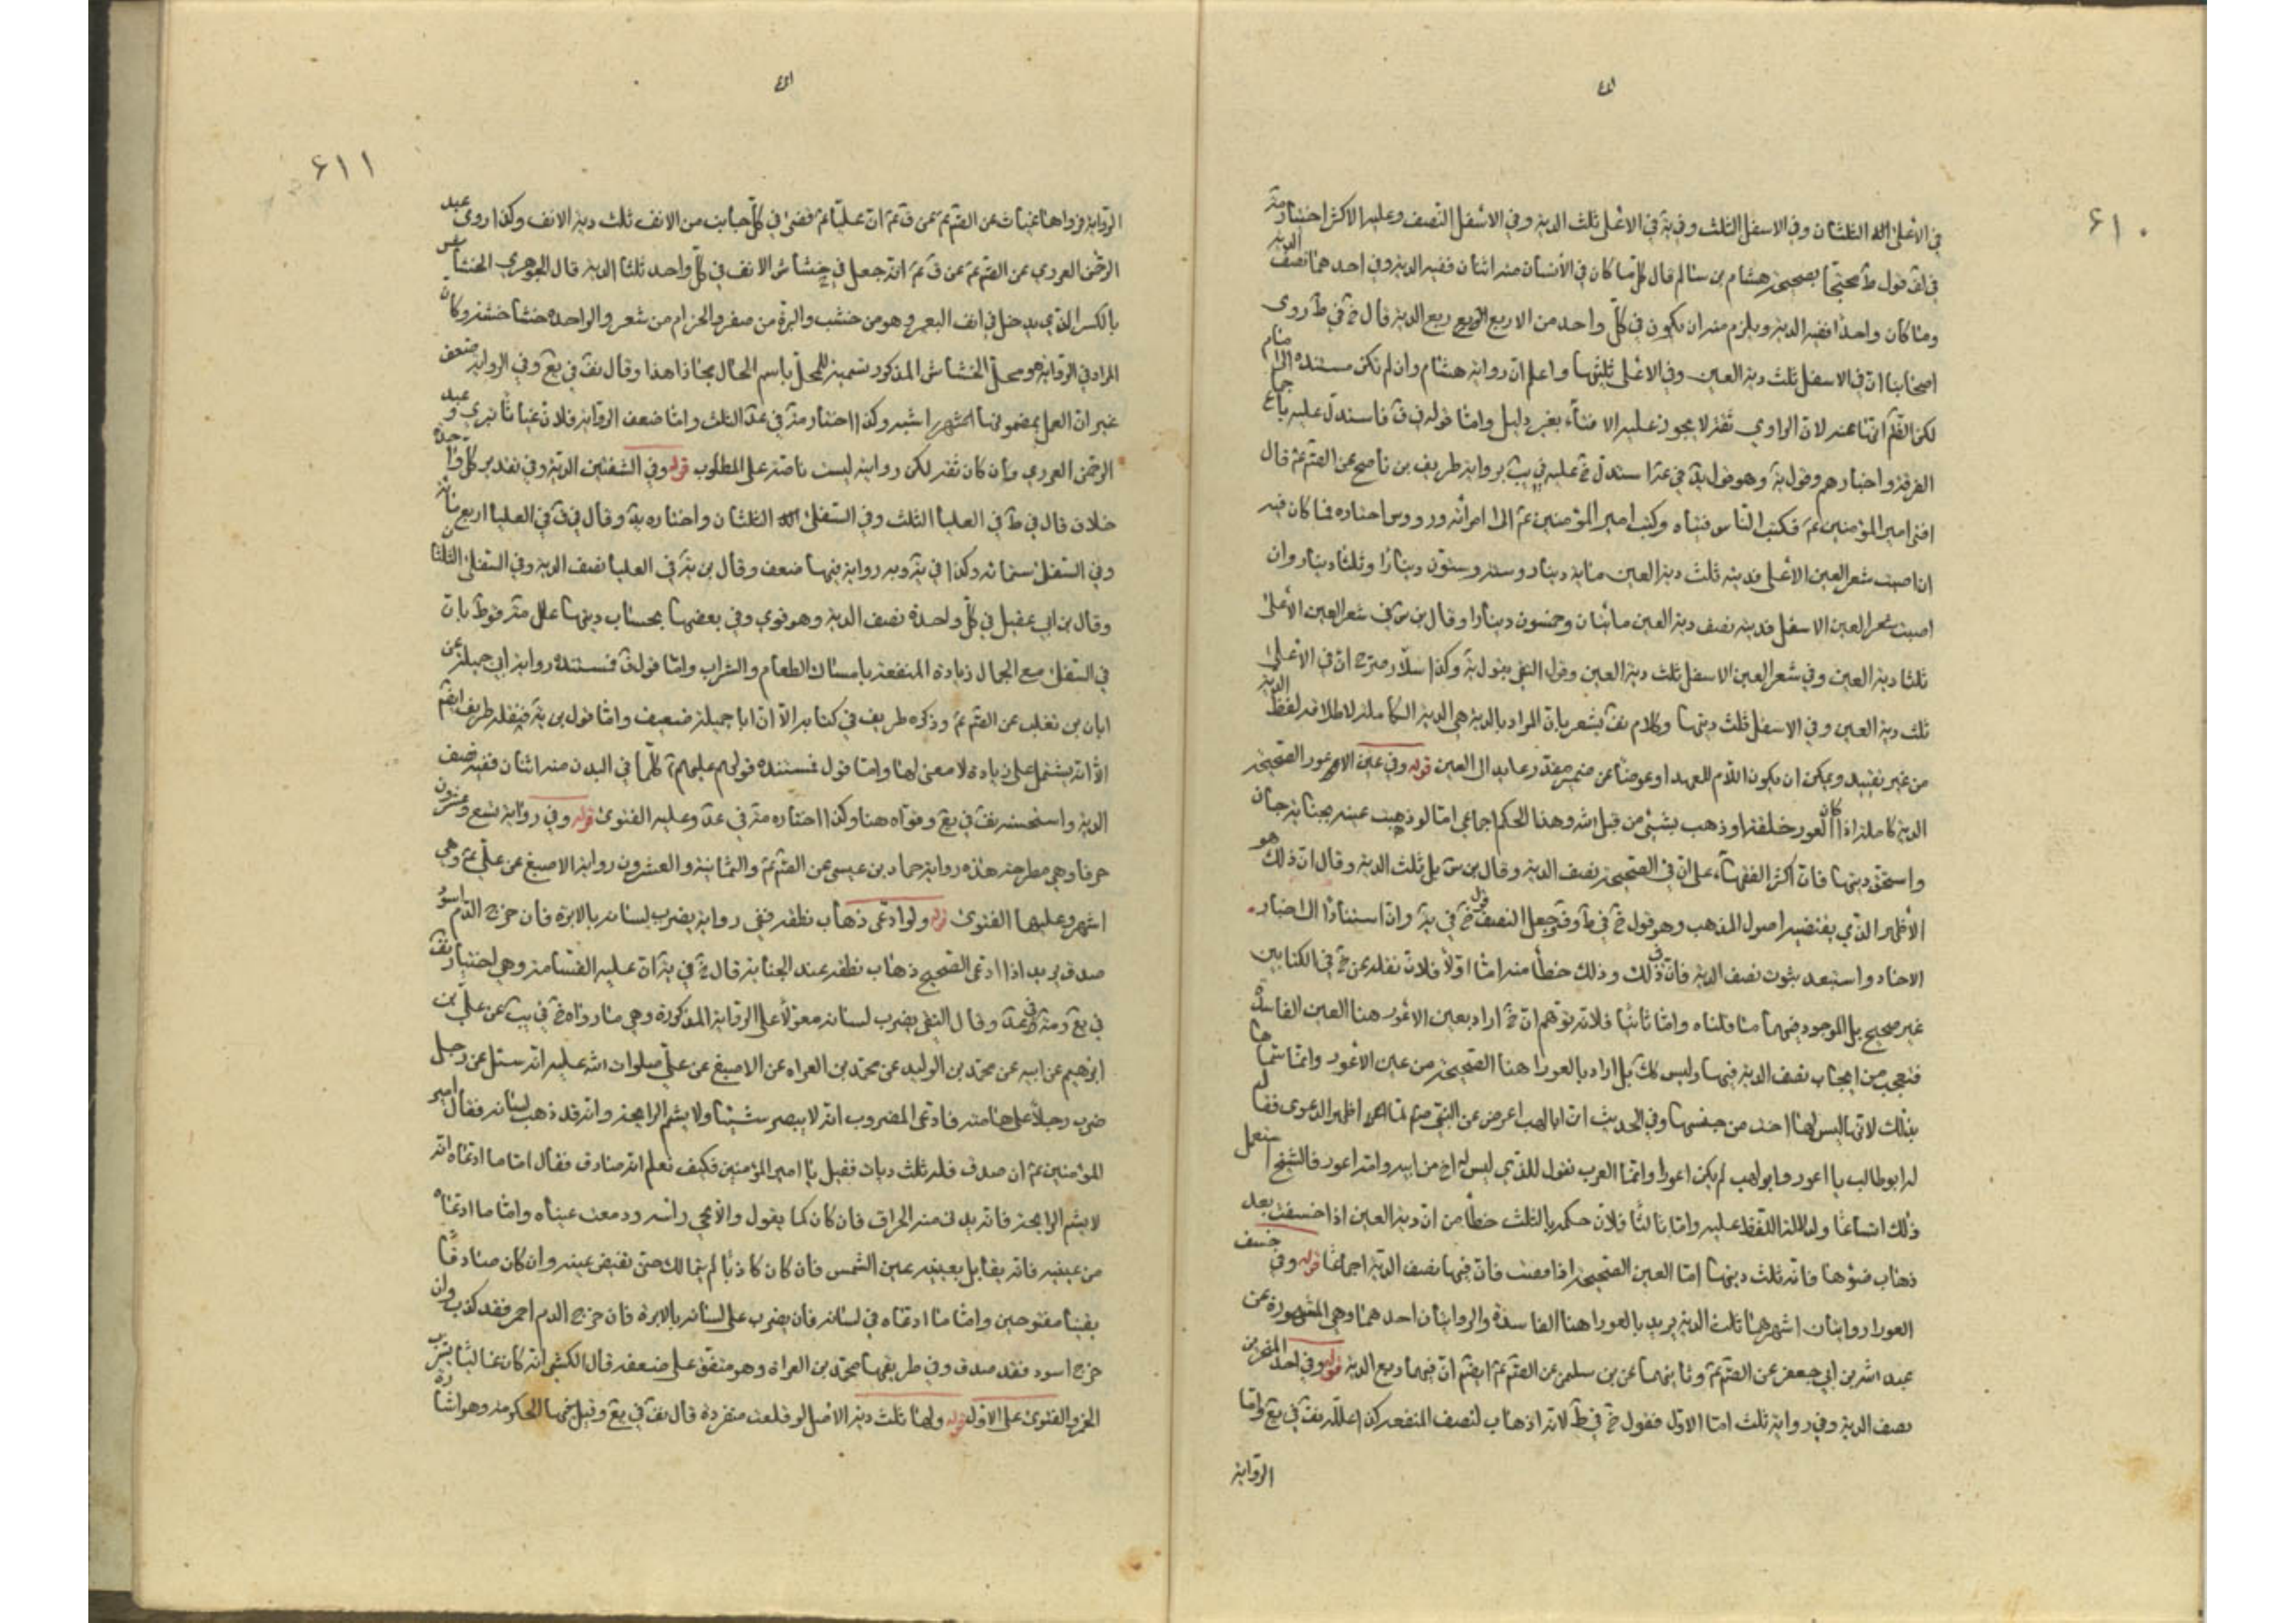 ۶۱۰
في الأعلى الثلثان وفي الاسفل الثلث وفي ية في الاعلى ثلث الدية وفي الاسفل النصف وعليه الاكثر اختاره
في لف قول ط محتجا بصحيحة هشام بن سالم قال كلما كان في الأنسان منه اثنان ففيه الدية وفي احدهما نصف الدية
وما كان واحدا ففيه الدية ويلزم منه ان يكون في كل واحد من الاربع ربع الدية قال خ في ط روى
اصحابنا ان في الاسفل ثلث دية العين وفي الاعلى ثلثيها واعلم ان رواية هشام وان لم تكن مسندة الى امام
لكن الظ انها عنه لان الراوي ثقة لا يجوز عليه الافتاء بغير دليل واما قوله في ف فاستدل عليه باجماع
الفرقة واخبارهم وقول ية وهو قول يد في عة استدل خ عليه في يب برواية ظريف بن ناصح عن الصم عم قال
افتى امير المؤمنين عم فكتب الناس فتياه وكتب امير المؤمنين عم الى امرائه ورووس اجناده فما كان فيه
ان اصيب شعر العين الأعلى فديته ثلث دية العين مأية دينار وستة وستون دينارا وثلثا دينار وان
اصيب شعر العين الاسفل فديته نصف دية العين مأيتان وخمسون دينارا وقال بن س في شعر العين الأعلى
ثلثا دية العين وفي شعر العين الاسفل ثلث دية العين وقول التقي بقول ية وكذا سلار صرح ان في الاعلى
ثلث دية العين وفي الاسفل ثلث ديتها وكلام يف يشعر بان المراد بالدية هي الدية الكاملة لاطلاقه لفظ الدية
من غير تقييد ويمكن ان يكون اللام للعهد او عوضا عن ضمير مقدر عايد الى العين قوله وفي عين الاعور الصحيحة
الدية كاملة اذا كان العور خلقة او ذهب بشيئ من قبل الله وهذا الحكم اجماعي اما لو ذهبت عينه بجناية جان
واستحق ديتها فان اكثر الفقهاء على ان في الصحيحة نصف الدية وقال بن س بل ثلث الدية وقال ان ذلك هو
الأظهر الذي يقتضيه اصول المذهب وهو قول خ في ط وف وجعل النصف قول خ في ية وان استنادا الى اخبار
الاحاد واستبعد ثبوت نصف الدية فان في ذلك وذلك خطأ منه اما اولا فلان نقله عن خ في الكتابين
غير صحيح بل الموجود فيهما ما قلناه واما ثانيا فلانه توهم ان خ اراد بعين الاعور هنا العين الفاسدة
فتعجب من ايجاب نصف الدية فيها وليس كك بل اراد بالعورا هنا الصحيحة من عين الأعور وانما سماها
بذلك لانها ليس لها اخت من جنسها وفي الحديث ان ابا لهب اعرض عن النبي صم لما اظهر الدعوى فقال
له ابو طالب يا اعور وابو لهب لم يكن اعورا وانما العرب تقول للذي ليس له اخ من ابيه وامه اعور فالشيخ استعمل
ذلك اتساعا ولدلالة اللفظ عليه واما ثالثا فلان حكمه بالثلث خطأ من ان دية العين اذا خسفت بعد
ذهاب ضؤها فانه ثلث ديتها اما العين الصحيحة اذا فقئت فان فيها نصف الدية اجماعا قوله وفي خسف
العورا روايتان اشهرهما ثلث الدية يريد بالعورا هنا الفاسدة والروايتان احدهما وهي المشهورة عن
عبد الله بن ابي جعفر عن الصم عم وثانيهما عن بن سليمن عن الصم عم ايضم ان فيها ربع الدية قوله وفي احد المنخرين
نصف الدية وفي رواية ثلث اما الاول فقول خ في ط لانه اذهاب لنصف المنفعة كذا علله يف في يع واما
الرواية
۶۱۱
الرواية فرواها غياث عن الصم عم عن ق عم ان عليا عم قضى في كل جانب من الانف ثلث دية الانف وكذا روى عبد
الرحمن العرزمي عن الصم عم عن ق عم انه جعل في خشاش الانف في كل واحد ثلثا الدية قال الجوهري الخشاش
بالكسر الذي يدخل في انف البعير وهو من خشب والبرة من صفر والخزام من شعر والواحدة خشاشة وكان
المراد في الرواية هو محل الخشاش المذكور تسمية للمحل باسم الحال مجازا هذا وقال يف في يع وفي الرواية ضعف
غير ان العمل بمضمونها اشبه وكذا اختار مة في عد الثلث واما ضعف الرواية فلان غياثا بتري وعبد
الرحمن العرزمي وان كان ثقة لكن روايته ليست ناصة على المطلوب قوله وفي الشفتين الدية وفي تقدير كل واحدة
خلاف قال في ط في العليا الثلث وفي السفلى الثلثان واختاره يد وقال في ف في العليا اربع مأية
وفي السفلى ستمائة وكذا في ية وبه رواية فيها ضعف وقال بن ية في العليا نصف الدية وفي السفلى الثلثان
وقال بن ابي عقيل في كل واحدة نصف الدية وهو قوي وفي بعضها بحساب ديتها علل مة قوط بان
في السفلى مع الجمال زيادة المنفعة بامساك الطعام والشراب واما قول ف فمستنده رواية ابي جميلة عن
ابان بن تغلب عن الصم عم وذكره ظريف في كتابه الا ان ابا جميلة ضعيف واما قول بن ية فنقله ظريف ايضم
الا انه يشتمل على زيادة لا معنى لها واما قول فمستنده قولهم عليهم كلما في البدن منه اثنان ففيه نصف
الدية واستحسنه يف في يع وقواه هنا وكذا اختاره مة في عد وعليه الفتوى قوله وفي رواية تسع وعشرون
حرفا وهي مطرحة هذه رواية حماد بن عيسى عن الصم عم والثمانية والعشرون رواية الاصبغ عن علي عم وهي
اشهر وعليها الفتوى قوله ولو ادعى ذهاب نطقه ففي رواية يضرب لسانه بالابرة فان خرج الدم اسود
صدق يريد اذا ادعى الصحيح ذهاب نطقه عند الجناية قال خ في ية ان عليه القسامة وهي اختيار يف
في يع ومة في عد وقال التقي يضرب لسانه معولا على الرواية المذكورة وهي ما رواه خ في يب عن علي بن
ابراهيم عن ابيه عن محمد بن الوليد عن محمد بن الفرات عن الاصبغ عن علي صلوات الله عليه انه سئل عن رجل
ضرب رجلا على هامته فادعى المضروب انه لا يبصر شيئا ولا يشم الرايحة وانه قد ذهب لسانه فقال امير
المؤمنين عم ان صدق فله ثلث ديات فقيل يا امير المؤمنين فكيف نعلم انه صادق فقال اما ما ادعاه انه
لا يشم الرايحة فانه يدنى منه الحراق فان كان كما يقول والا نحى راسه ودمعت عيناه واما ما ادعاه
من عينيه فانه يقابل بعينيه عين الشمس فان كان كاذبا لم يتمالك حتى تغيض عينه وان كان صادقا
بقيتا مفتوحتين واما ما ادعاه في لسانه فان يضرب على لسانه بالابرة فان خرج الدم احمر فقد كذب وان
خرج اسود فقد صدق وفي طريقها محمد بن الفرات وهو متفق على ضعفه قال الكشي انه كان غاليا يشرب
الخمر والفتوى على الاول قوله ولها ثلث دية الاصل لو قلعت منفردة قال يف في يع وقيل فيها الحكومة وهو اشارة